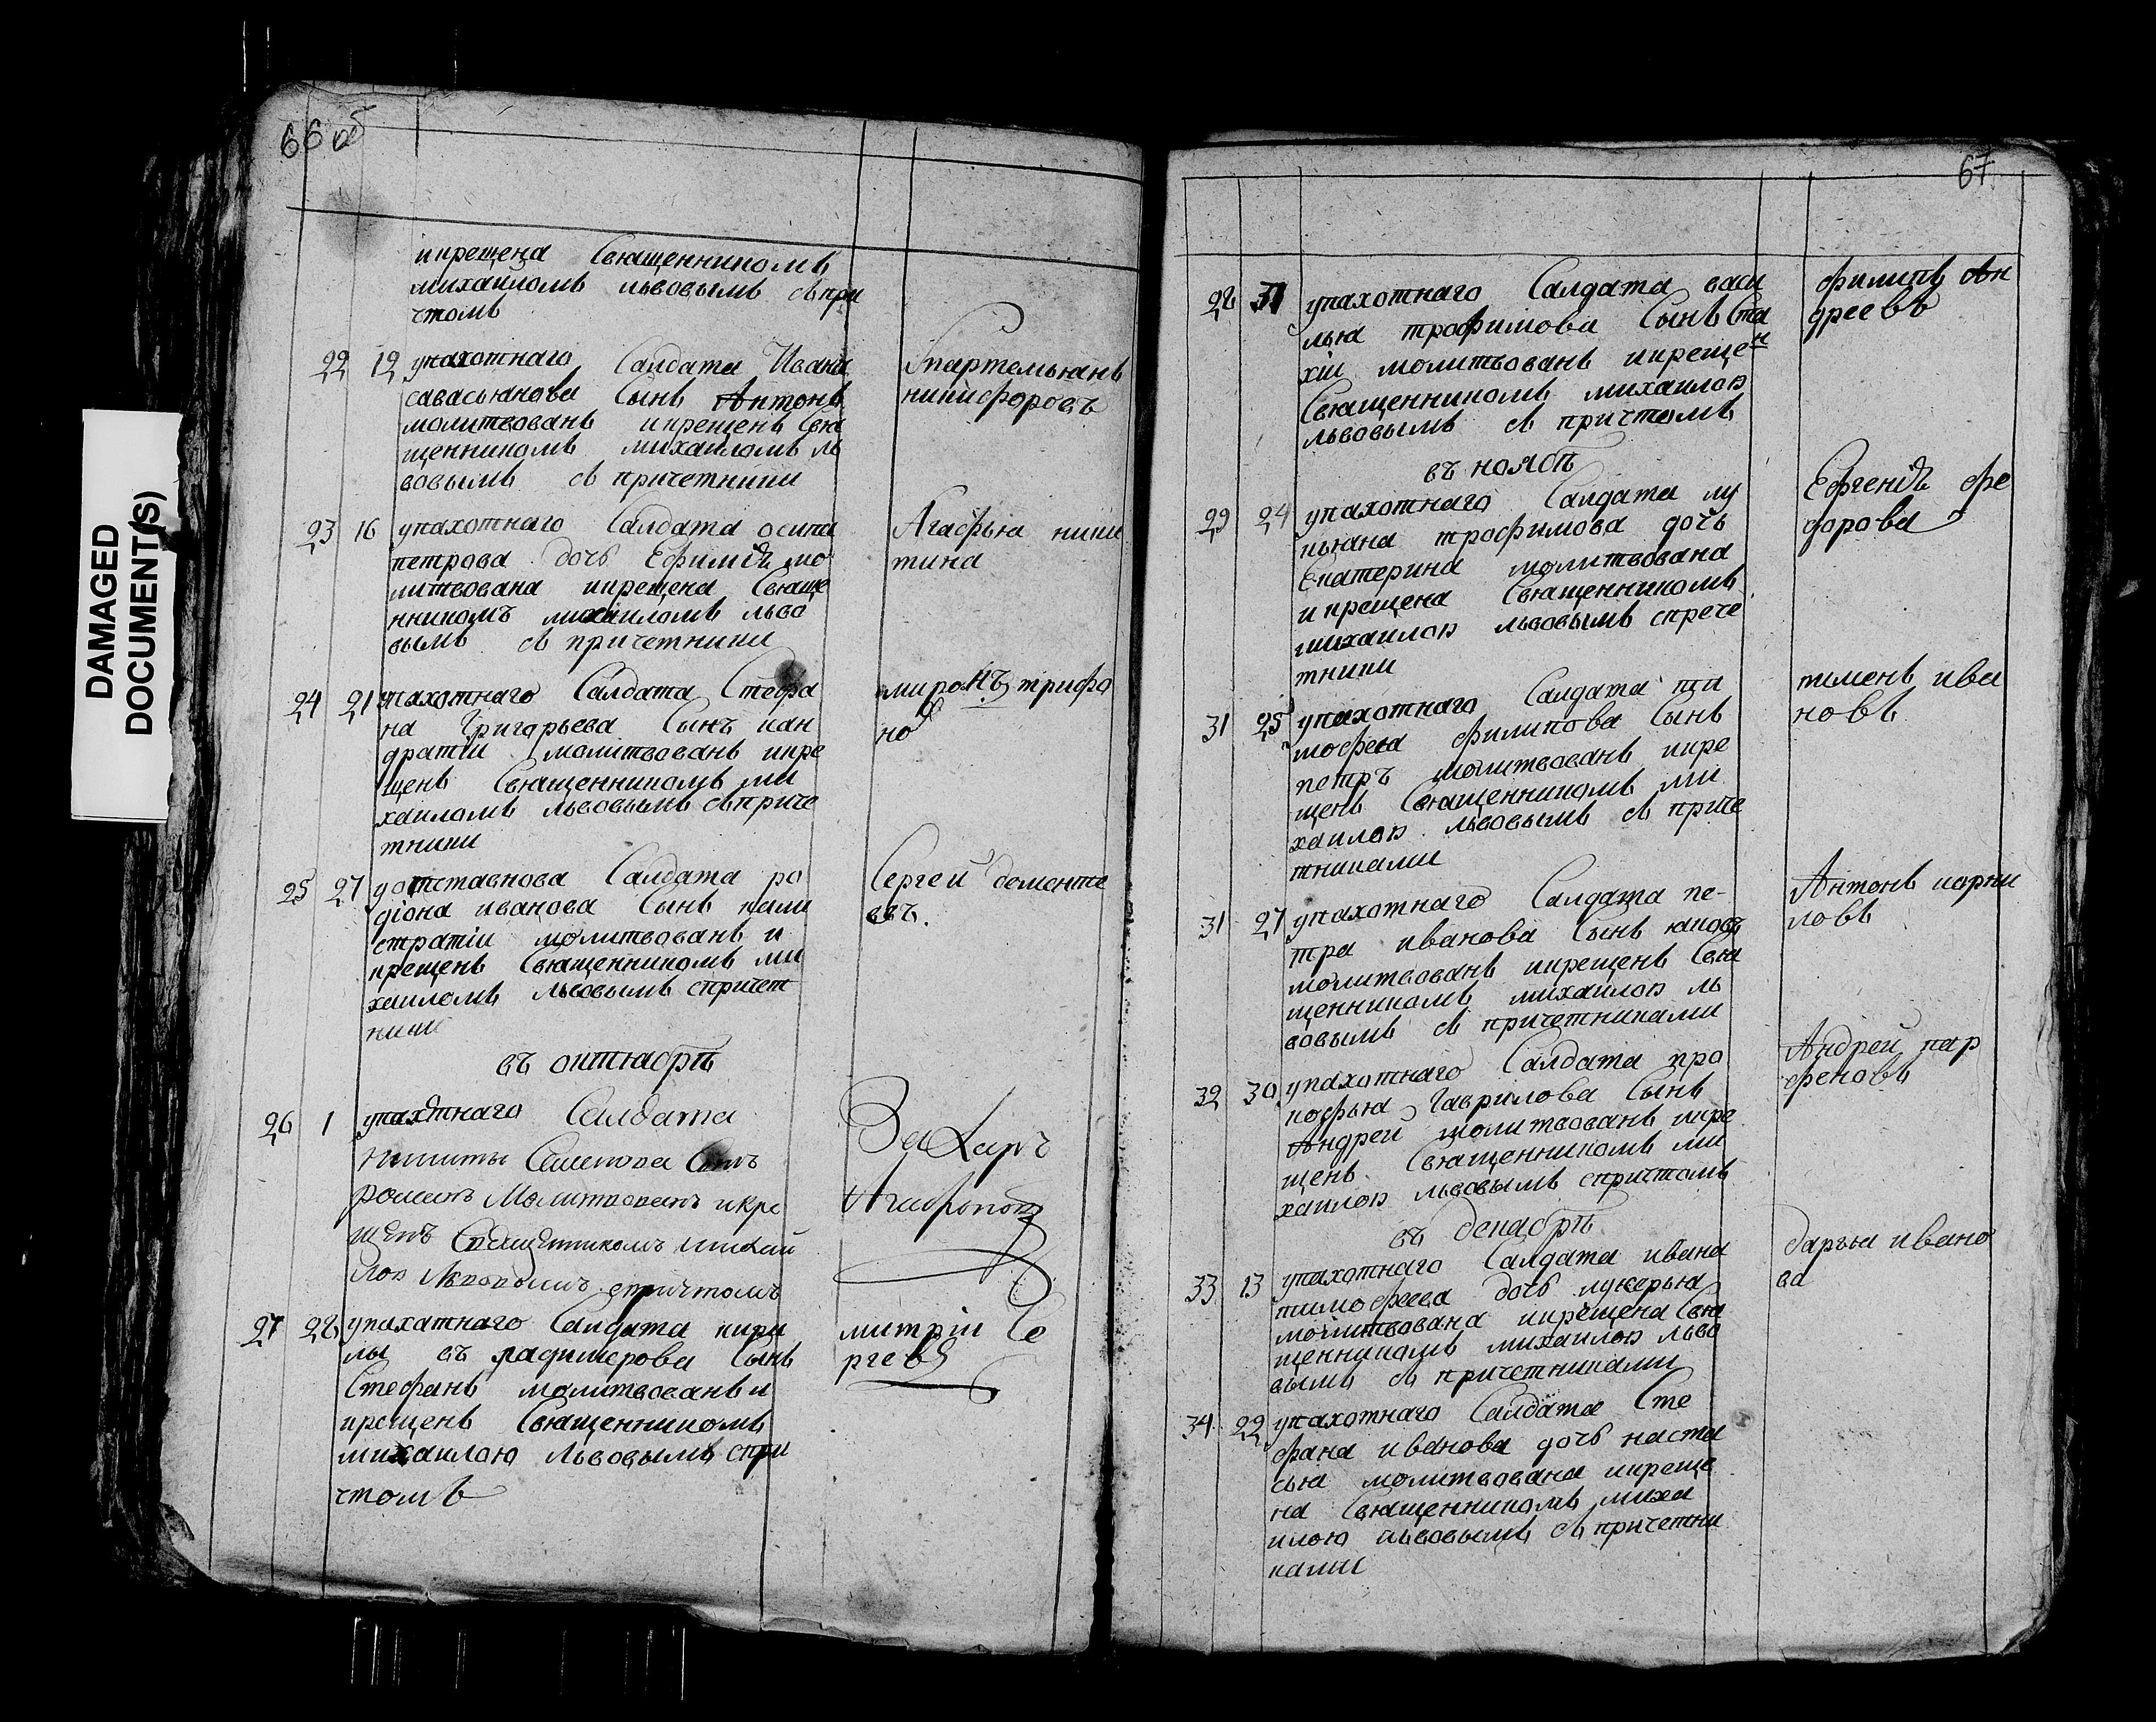 DAMAGED
DOCUMENT(S)
66 об
икрещена Священникомъ
михаиломъ львовымъ съпри
чтомъ
22 12 упахотнаго Салдата Ивана
савасьянова Сынъ Антонъ
молитвованъ икрещенъ Свя
щенникомъ михаиломъ ль
вовымъ съ причетники
никифоровъ
23 16 упахотнаго Салдата осипа
петрова дочь Ефимия мо
литвована икрещена Свяще
нникомъ михаиломъ льво
вымъ съ причетники
Агафья ники
тина
24 21 упахотнаго Салдата Стефа
на Григорьева Сынъ кан
дратiи молитвованъ икре
щенъ Священникомъ ми
хаиломъ львовымъ съприче
тники
миронъ трифо
но
25 27 уотставнова Салдата ро
дiона иванова Сынъ кали
стратiи молитвованъ и
крещенъ Священникомъ ми
хаиломъ львовымъ спричет
ники
Сергей дементе
евъ.
въ октябрѣ
26 1 упахотнаго Салдата
Никиты Семенова Сынъ
романъ Молитвованъ икре
щенъ Священникомъ михаи
лом Львовымъ спричтомъ
Захаръ
Агафонов
27 28 упахатнаго Салдата кири
лы въ ладимерова Сынъ
Стефанъ молитвованъ и
крещенъ Священникомъ
михаилою Львовымъ спри
чтомъ
митрiи Се
ргевъ
67
28 31 упахотнаго Салдата васи
лья трофимова Сынъ Ста
хiи молитвованъ икрещен
Священникомъ михаилом
львовымъ съ причтомъ
филипъ Ан
дреевъ
въ ноябрѣ
29 24 упахотнаго Салдата лу
кьяна трофимова дочь
Екатерина молитвована
и крещена Священникомъ
михаилом львовымъ спрече
тники
Ефгения фе
дорова
31 25 упахотнаго Салдата ти
мофеея филипова Сынъ
петръ молитвованъ икре
щенъ Священникомъ ми
хаилом львовымъ съприче
тниками
пименъ ива
новъ
31 27 упахотнаго Салдата пе-
тра иванова Сынъ яковъ
молитвованъ икрещенъ Свя
щенникомъ михаилом ль
вовымъ съ причетниками
Антонъ корни
ловъ
32 30 упахотнаго Салдата про
кофья Гаврилова Сынъ
Андрей молитвованъ икре
щенъ Священникомъ ми
хаилом львовымъ спричтомъ
Андрей пар
феновъ
въ декабрѣ
33 13 упахотнаго Салдата ивана
тимофеева дочь лукерья
молитвована икрещена Свя
щенникомъ михаилом льво
вымъ съ причетниками
дарья ивано
ва
34 22 упахотнаго Салдата Сте
фана иванова дочь наста
сья молитвована икреще
на Священникомъ миха
илою львовымъ съ причетни
ками